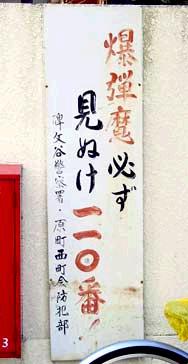 爆弾魔必ず
見ぬけ一一〇番!
碑文谷警察署・原町西町会防犯部
3